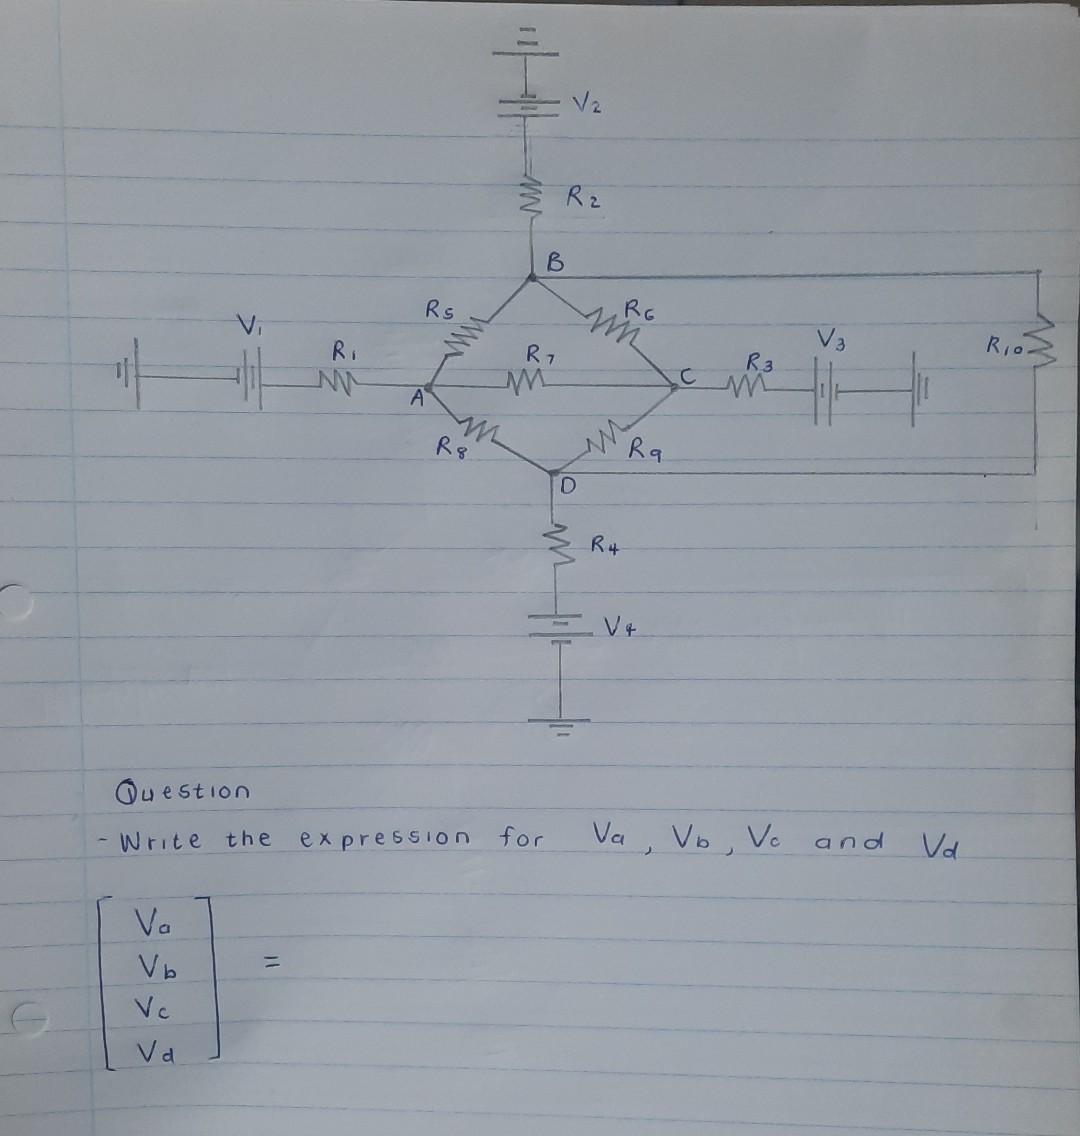 V2
R2
B
R5
R6
V1
R1
R7
V3
R10
R3
A
C
R8
R9
D
R4
V4
Question
- Write the expression for Va, Vb, Vc and Vd
Va
Vb =
Vc
Vd